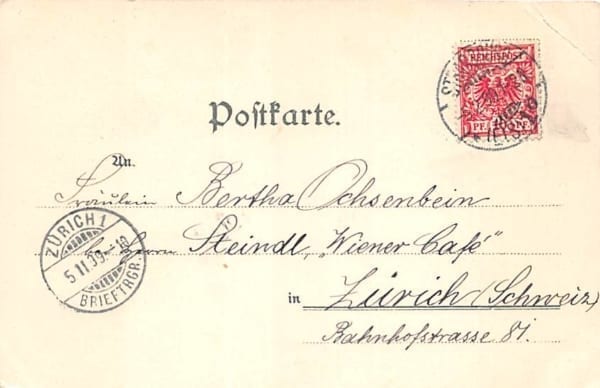 REICHSPOST
Postkarte.
An.
Fräulein Bertha Ochsenbein
ZÜRICH 1
5.11.99.-10
BRIEFTRGR.
by Herrn Steindl, "Wiener Café"
in Zürich (Schweiz)
Bahnhofstrasse 81.